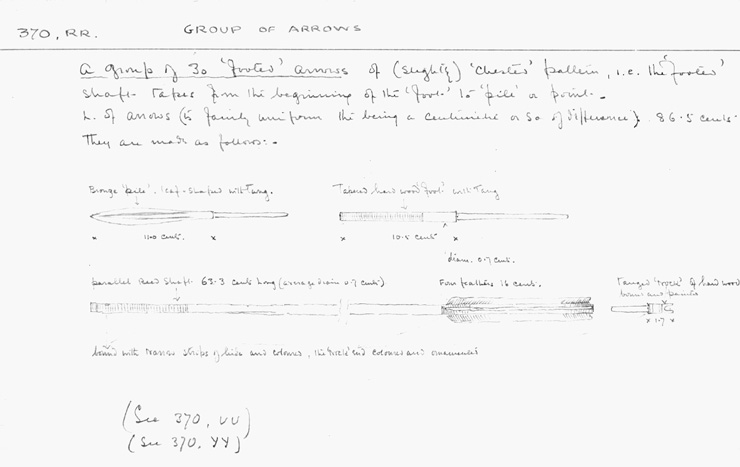 370, RR. GROUP OF ARROWS
A group of 30 'footed' arrows of (slightly) 'chested' pattern, i.e. the 'footed'
shaft tapes from the beginning of the 'foot' to 'pile' or point.
L. of arrows (is fairly uniform the being a centimetre or so of difference). 86.5 cents.
They are made as follows:-
Bronze 'pile'. leaf-shaped with tang.
Tapered hard wood 'foot' with tang
× 11.0 cent. ×
× 10.5 cent. ×
diam. 0.7 cent.
parallel Reed Shaft. 63.3 cents long (average diam 0.7 cents)
Four feathers 16 cent.
Tanged 'nock' of hard wood
bound and painted
× 1.7 ×
bound with narrow strips of hide and coloured, the 'nock' end coloured and ornamented
(See 370, UU)
(See 370, YY)